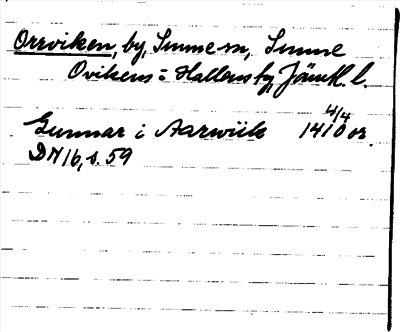 Orrviken, by, Sunne sn, Sunne
Ovikens o Hallens tg, Jämtl. l.
4/4
Gunnar i Aarwiik 1410 or.
DN 16, s. 59